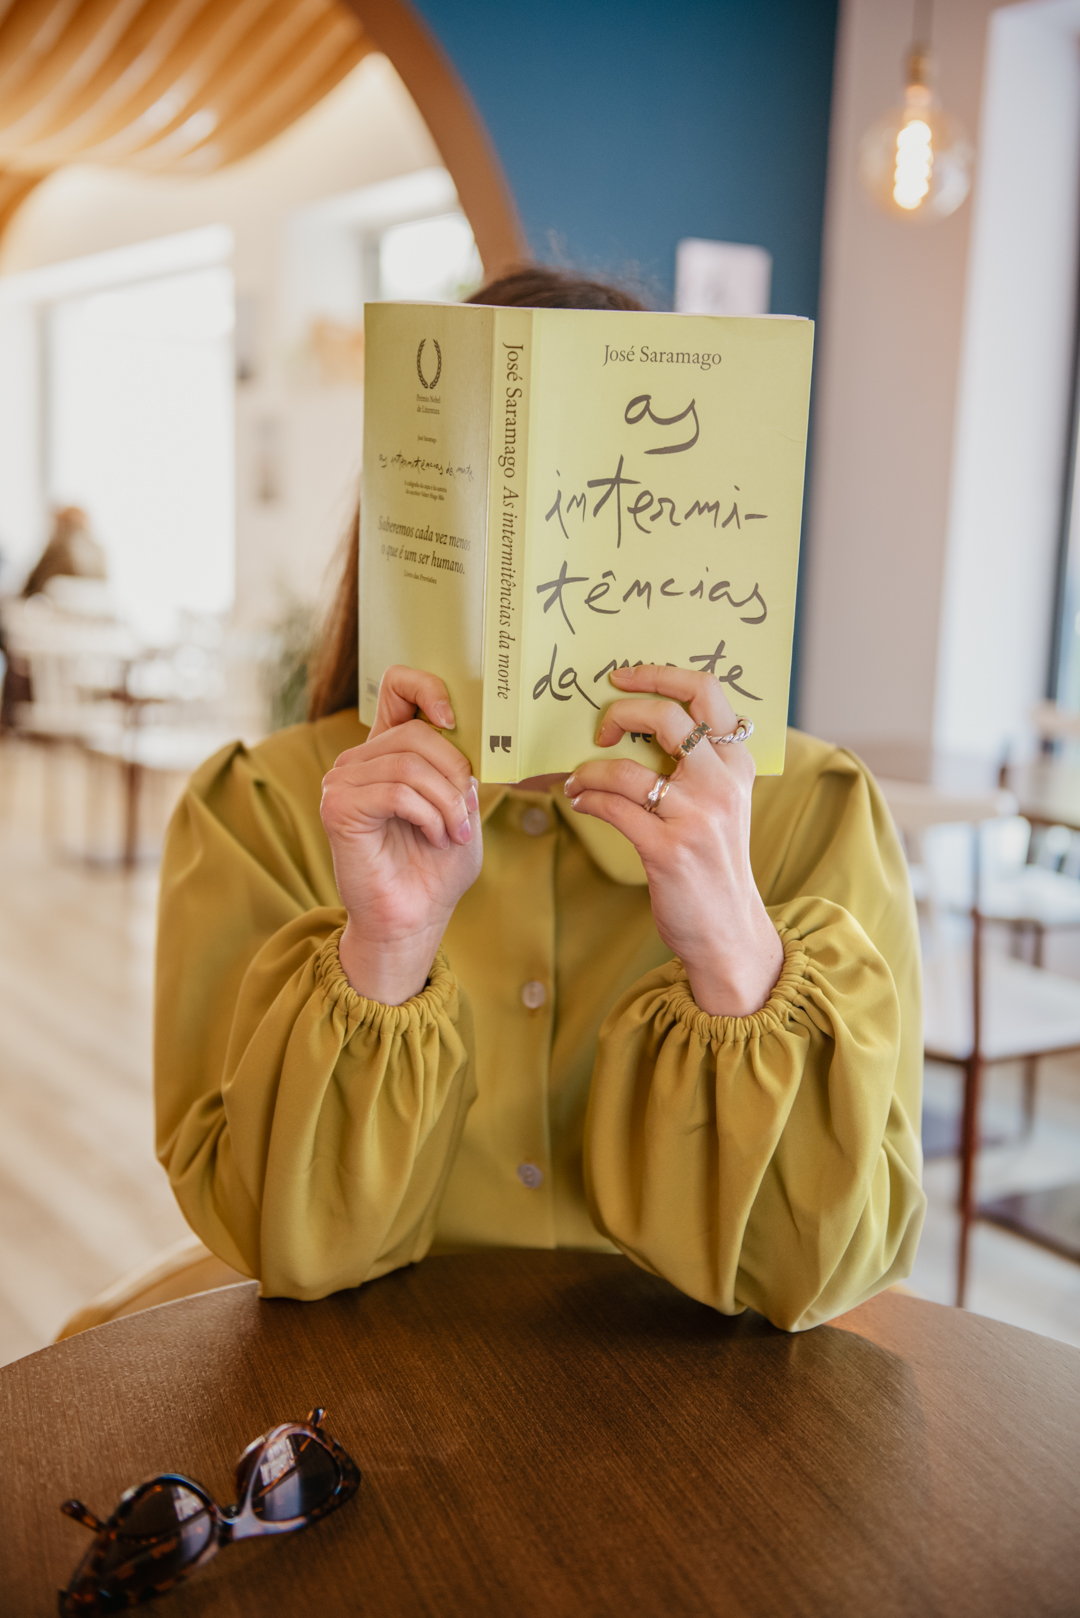 Prémio Nobel
de Literatura
José Saramago
as intermitências da morte
Saberemos cada vez menos
o que é um ser humano.
Livro das Previsões
José Saramago As intermitências da morte
José Saramago
as
intermi-
tências
da morte